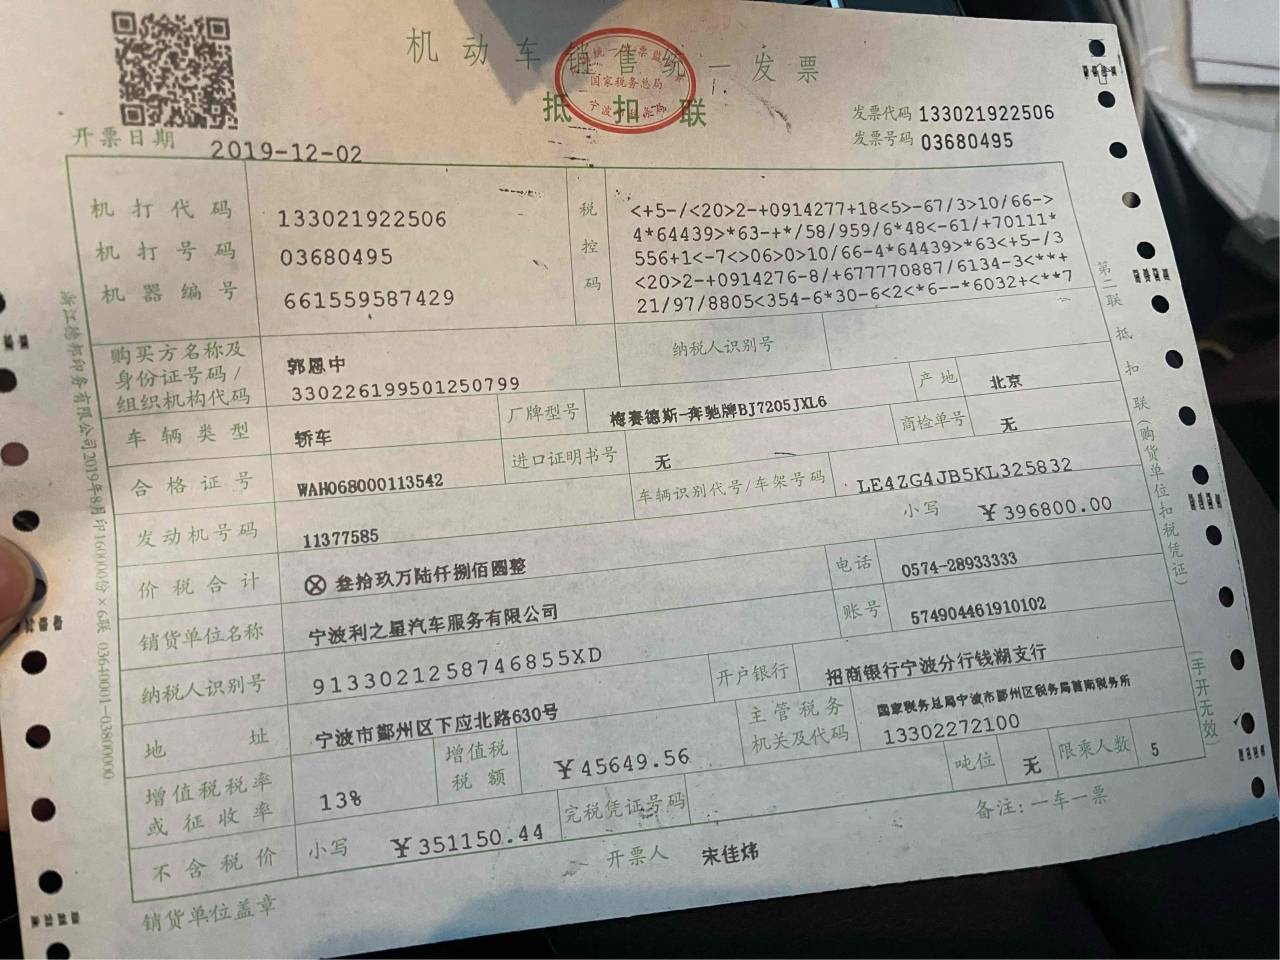 机动车销售统一发票
国家税务总局
抵扣联
发票代码 133021922506
发票号码 03680495
开票日期 2019-12-02
机打代码 133021922506
机打号码 03680495
机器编号 661559587429
税控码
<+5-/<20>2-+0914277+18<5>-67/3>10/66->
4*64439>*63-+*/58/959/6*48<-61/+70111*
556+1<-7<>06>0>10/66-4*64439>*63<+5-/3
<20>2-+0914276-8/+677770887/6134-3<**+
21/97/8805<354-6*30-6<2<*6--*6032+<**7
购买方名称及身份证号码/组织机构代码
郭恩中
330226199501250799
纳税人识别号
车辆类型 轿车
厂牌型号 梅赛德斯-奔驰牌BJ7205JXL6
产地 北京
合格证号 WAH068000113542
进口证明书号 无
商检单号 无
发动机号码 11377585
车辆识别代号/车架号码 LE4ZG4JB5KL325832
价税合计 ⊗叁拾玖万陆仟捌佰圆整
小写 ¥396800.00
销货单位名称 宁波利之星汽车服务有限公司
电话 0574-28933333
纳税人识别号 9133021258746855XD
账号 574904461910102
地址 宁波市鄞州区下应北路630号
开户银行 招商银行宁波分行钱湖支行
增值税税率或征收率 13%
增值税税额 ¥45649.56
主管税务机关及代码
国家税务总局宁波市鄞州区税务局首南税务所
13302272100
不含税价 小写 ¥351150.44
完税凭证号码
吨位 无
限乘人数 5
销货单位盖章
开票人 宋佳炜
备注:一车一票
第二联 抵扣联(购货单位扣税凭证)
(手开无效)